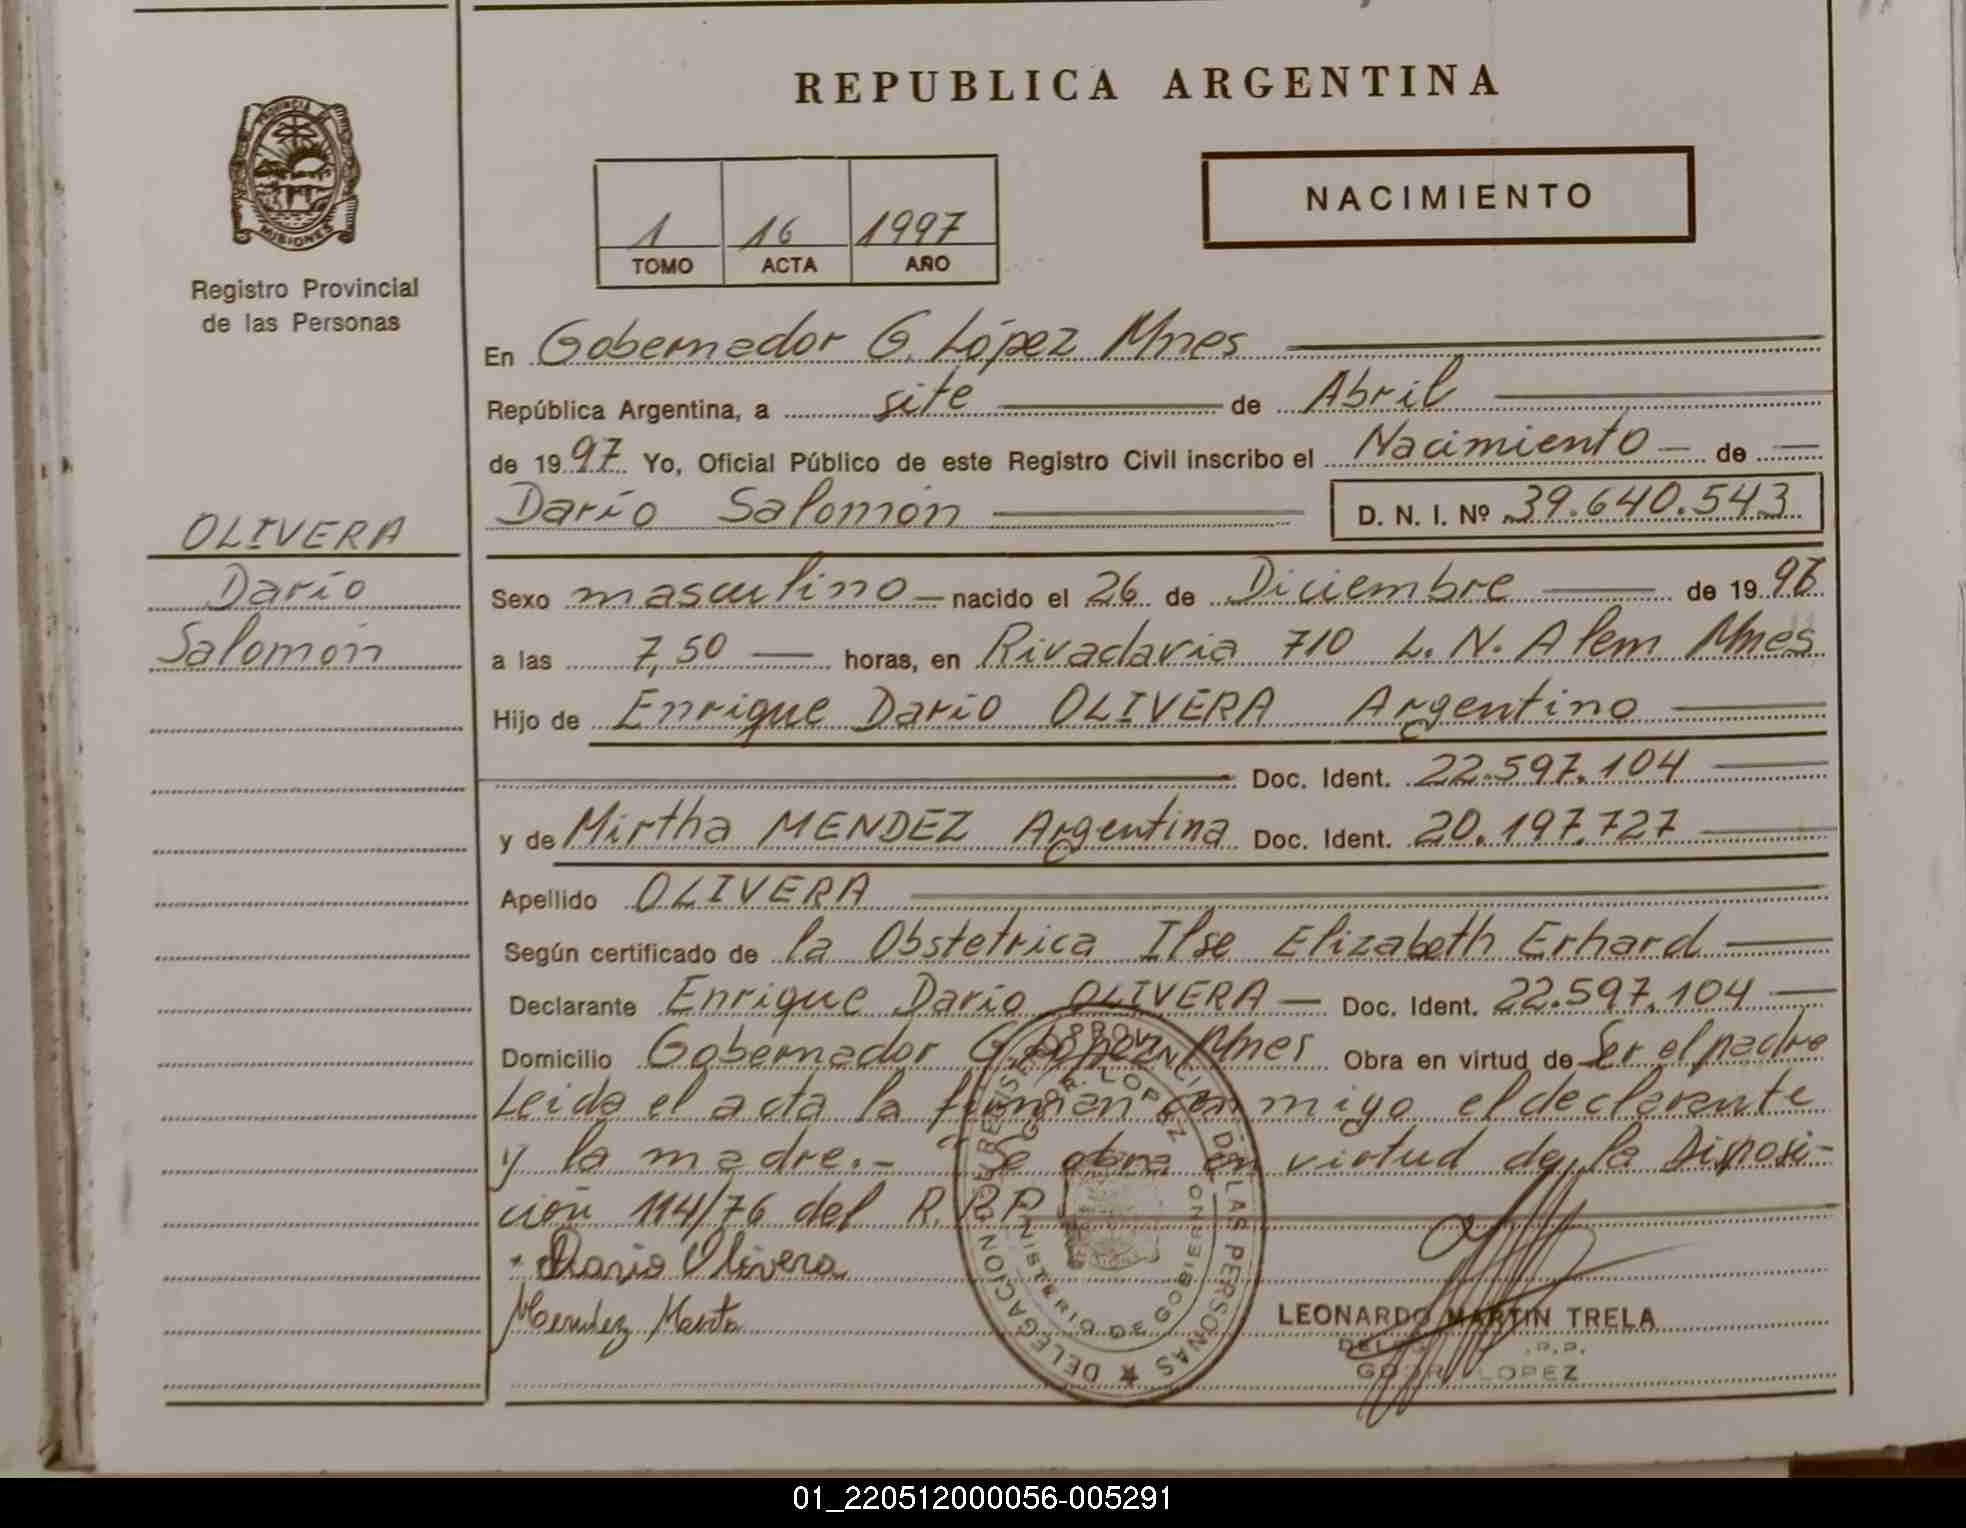 REPUBLICA ARGENTINA
PROVINCIA DE
MISIONES
Registro Provincial
de las Personas
NACIMIENTO
1 16 1997
TOMO ACTA AÑO
En Gobernador G. López Mnes
República Argentina, a site de Abril
de 1997 Yo, Oficial Público de este Registro Civil inscribo el Nacimiento de
Darío Salomón D. N. I. Nº 39.640.543
OLIVERA
Darío
Salomón
Sexo masculino nacido el 26 de Diciembre de 19
a las 7,50 horas, en Rivadavia 710 L. N. Alem Mnes
Hijo de Enrique Darío OLIVERA Argentino
Doc. Ident. 22.597.104
y de Mirtha MENDEZ Argentina Doc. Ident. 20.197.727
Apellido OLIVERA
Según certificado de la Obstetrica Ilse Elizabeth Erhard
Declarante Enrique Darío OLIVERA Doc. Ident. 22.597.104
Domicilio Gobernador G. López Mnes Obra en virtud de Ser el padre
Leida el acta la firman con migo el declarante
y la madre.- Se obra en virtud de la Disposi-
ción 114/76 del R.R.P.
Dario Olivera
Mendez
DELEGACION DE REGISTRO PROVINCIAL DE LAS PERSONAS
GDOR. LOPEZ
MINISTERIO DE GOBIERNO
LEONARDO MARTIN TRELA
GDOR. LOPEZ
01_220512000056-005291